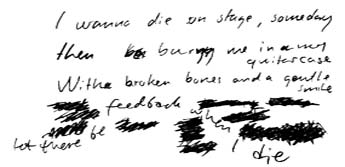 I wanna die on stage, someday
then bury me in a my
guitarcase
With a broken bones and a gentle
smile
feedback when
Let there be
I die